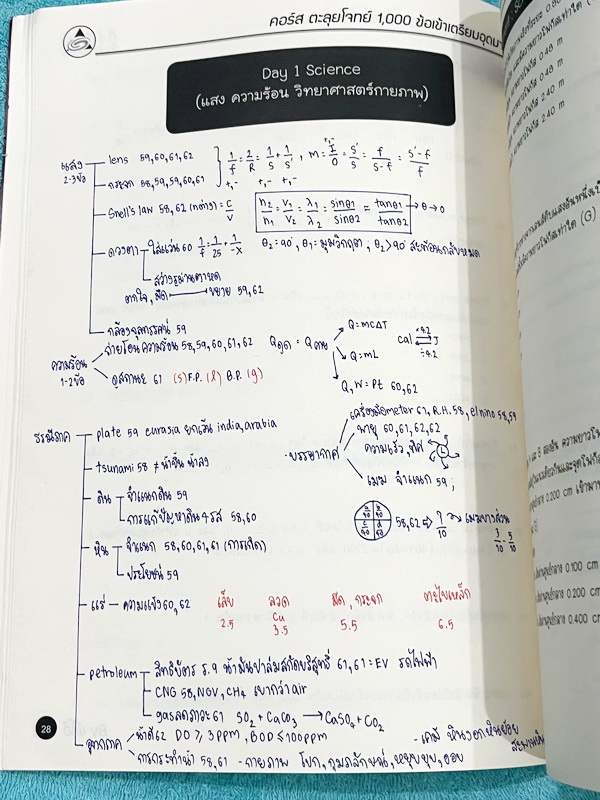 คอร์ส ตะลุยโจทย์ 1,000 ข้อเข้าเตรียมอุดมฯ
Day 1 Science
(แสง ความร้อน วิทยาศาสตร์กายภาพ)
แสง
2-3 ข้อ
lens 59,60,61,62
1/f = 2/R = 1/s + 1/s' , m = I/O = s'/s = f/(s-f) = (s'-f)/f
กระจก 58,59,59,60,61
Snell's law 58,62 (กล่าง) = c/v
n2/n1 = v1/v2 = λ1/λ2 = sinθ1/sinθ2 = tanθ1/tanθ2 → θ → 0
ดวงตา ใส่แว่น 60 1/f = 1/25 + 1/-x
θ2 = 90°, θ1 = มุมวิกฤต , θ2 > 90° สะท้อนกลับหมด
สว่างรูม่านตาหด
ตกใจ, มืด ขยาย 59,62
กล้องจุลทรรศน์ 59
ความร้อน
1-2 ข้อ
ถ่ายโอนความร้อน 58,59,60,61,62
Qดูด = Qคาย
Q = mcΔT
Q = mL
Q, W = Pt 60,62
cal ×4.2 J ÷4.2
อุสถานะ 61 (s) F.P. (l) B.P. (g)
ธรณีภาค
plate 59 eurasia ยกเว้น india, arabia
tsunami 58 ≠ น้ำขึ้น น้ำลง
ดิน จำแนกดิน 59
การแก้ปัญหาดิน 4 รส 58,60
หิน จำแนก 58,60,61,61 (การเกิด)
ประโยชน์ 59
บรรยากาศ
เครื่องมือ meter 61, R.H. 58, el nino 58,59
พายุ 60,61,62,62
ความเร็ว, ทิศ L
เมฆ จำแนก 59 ;
58,62 ⇒ ?/10 เมฆบางส่วน
3/10 - 5/10
แร่ ความแข็ง 60,62
เล็บ 2.5
ลวด Cu 3.5
มีด , กระจก 5.5
ตะไบเหล็ก 6.5
petroleum สิทธิบัตร ร.9 น้ำมันปาล์มสกัดบริสุทธิ์ 61,61 = EV รถไฟฟ้า
CNG 58, NGV, CH4 เบากว่า air
gas ลดภาวะ 61 SO2 + CaCO3 → CaSO4 + CO2
อุทกภาค
น้ำดี 62 DO ≥ 3 ppm , BOD ≤ 100 ppm
การกระทำน้ำ 58,61 - กายภาพ โบก, กุมภลักษณ์, หลุบยุบ, ออบ
- เคมี หินงอกหินย้อย
28
0.48 m
0.48 m
240 m
240 m
0.200 cm
0.100 cm
0.200 cm
0.400 cm